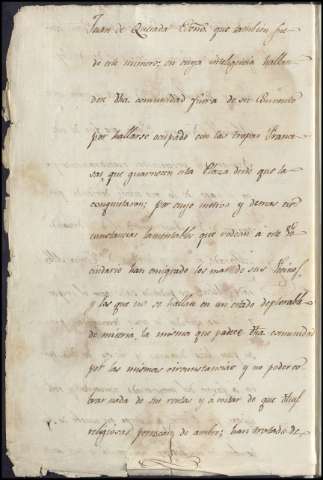 Juan de Quesada Essno. que tambien fue
de este numero; en cuya inteligencia hallan
dose dha. comunidad fuera de su Convento
por hallarse ocupado con las tropas France
sas, que guarnecen esta Plaza desde que la
conquistaron; por cuyo motivo y demas cir
cunstancias lamentables que rodean a este Ve
cindario han emigrado los mas de sus Vecinos,
y los que no se hallan en un estado deplorable
de miseria, la misma que padece dha comunidad
por las mismas circunstancias y no poder co
brar nada de sus rentas y a evitar de que dhas
religiosas perezcan de ambre; han tratado de